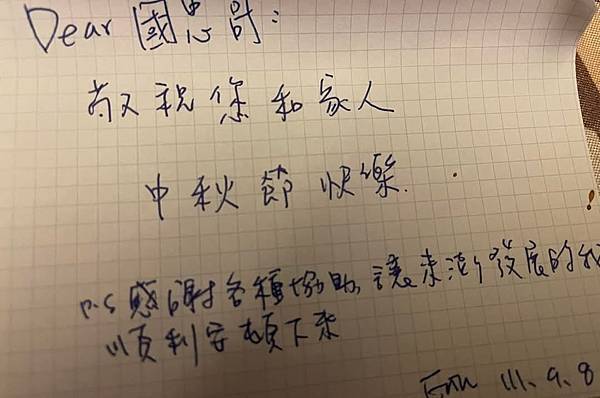 Dear 國
敬祝您和家人
中秋節快樂.
P.S 感謝各種協助, 讓來發展的我
順利安頓下來
111. 9. 8